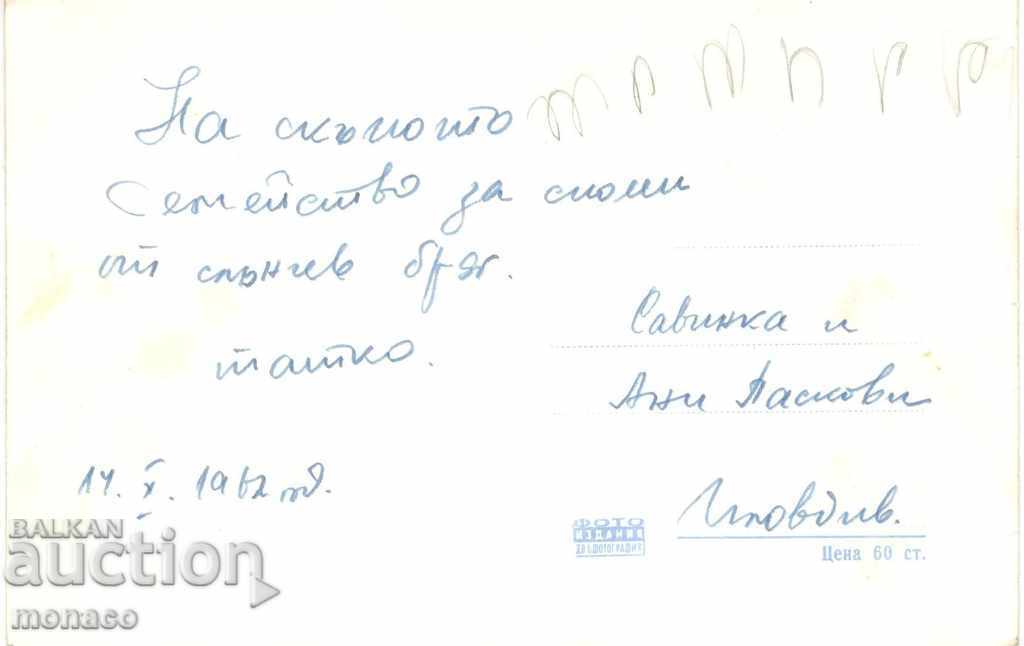 На скъпото
Семейство за спомен
от слънчев бряг.
татко.
14. X. 1962 год.
Савинка и
Ани Паскови
Пловдив.
ФОТО
ИЗДАНИЕ
ДП БЪЛ. ФОТОГРАФИЯ
Цена 60 ст.
BALKAN
auction
monaco